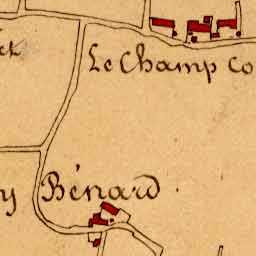 Le Champ Co
Bénard.